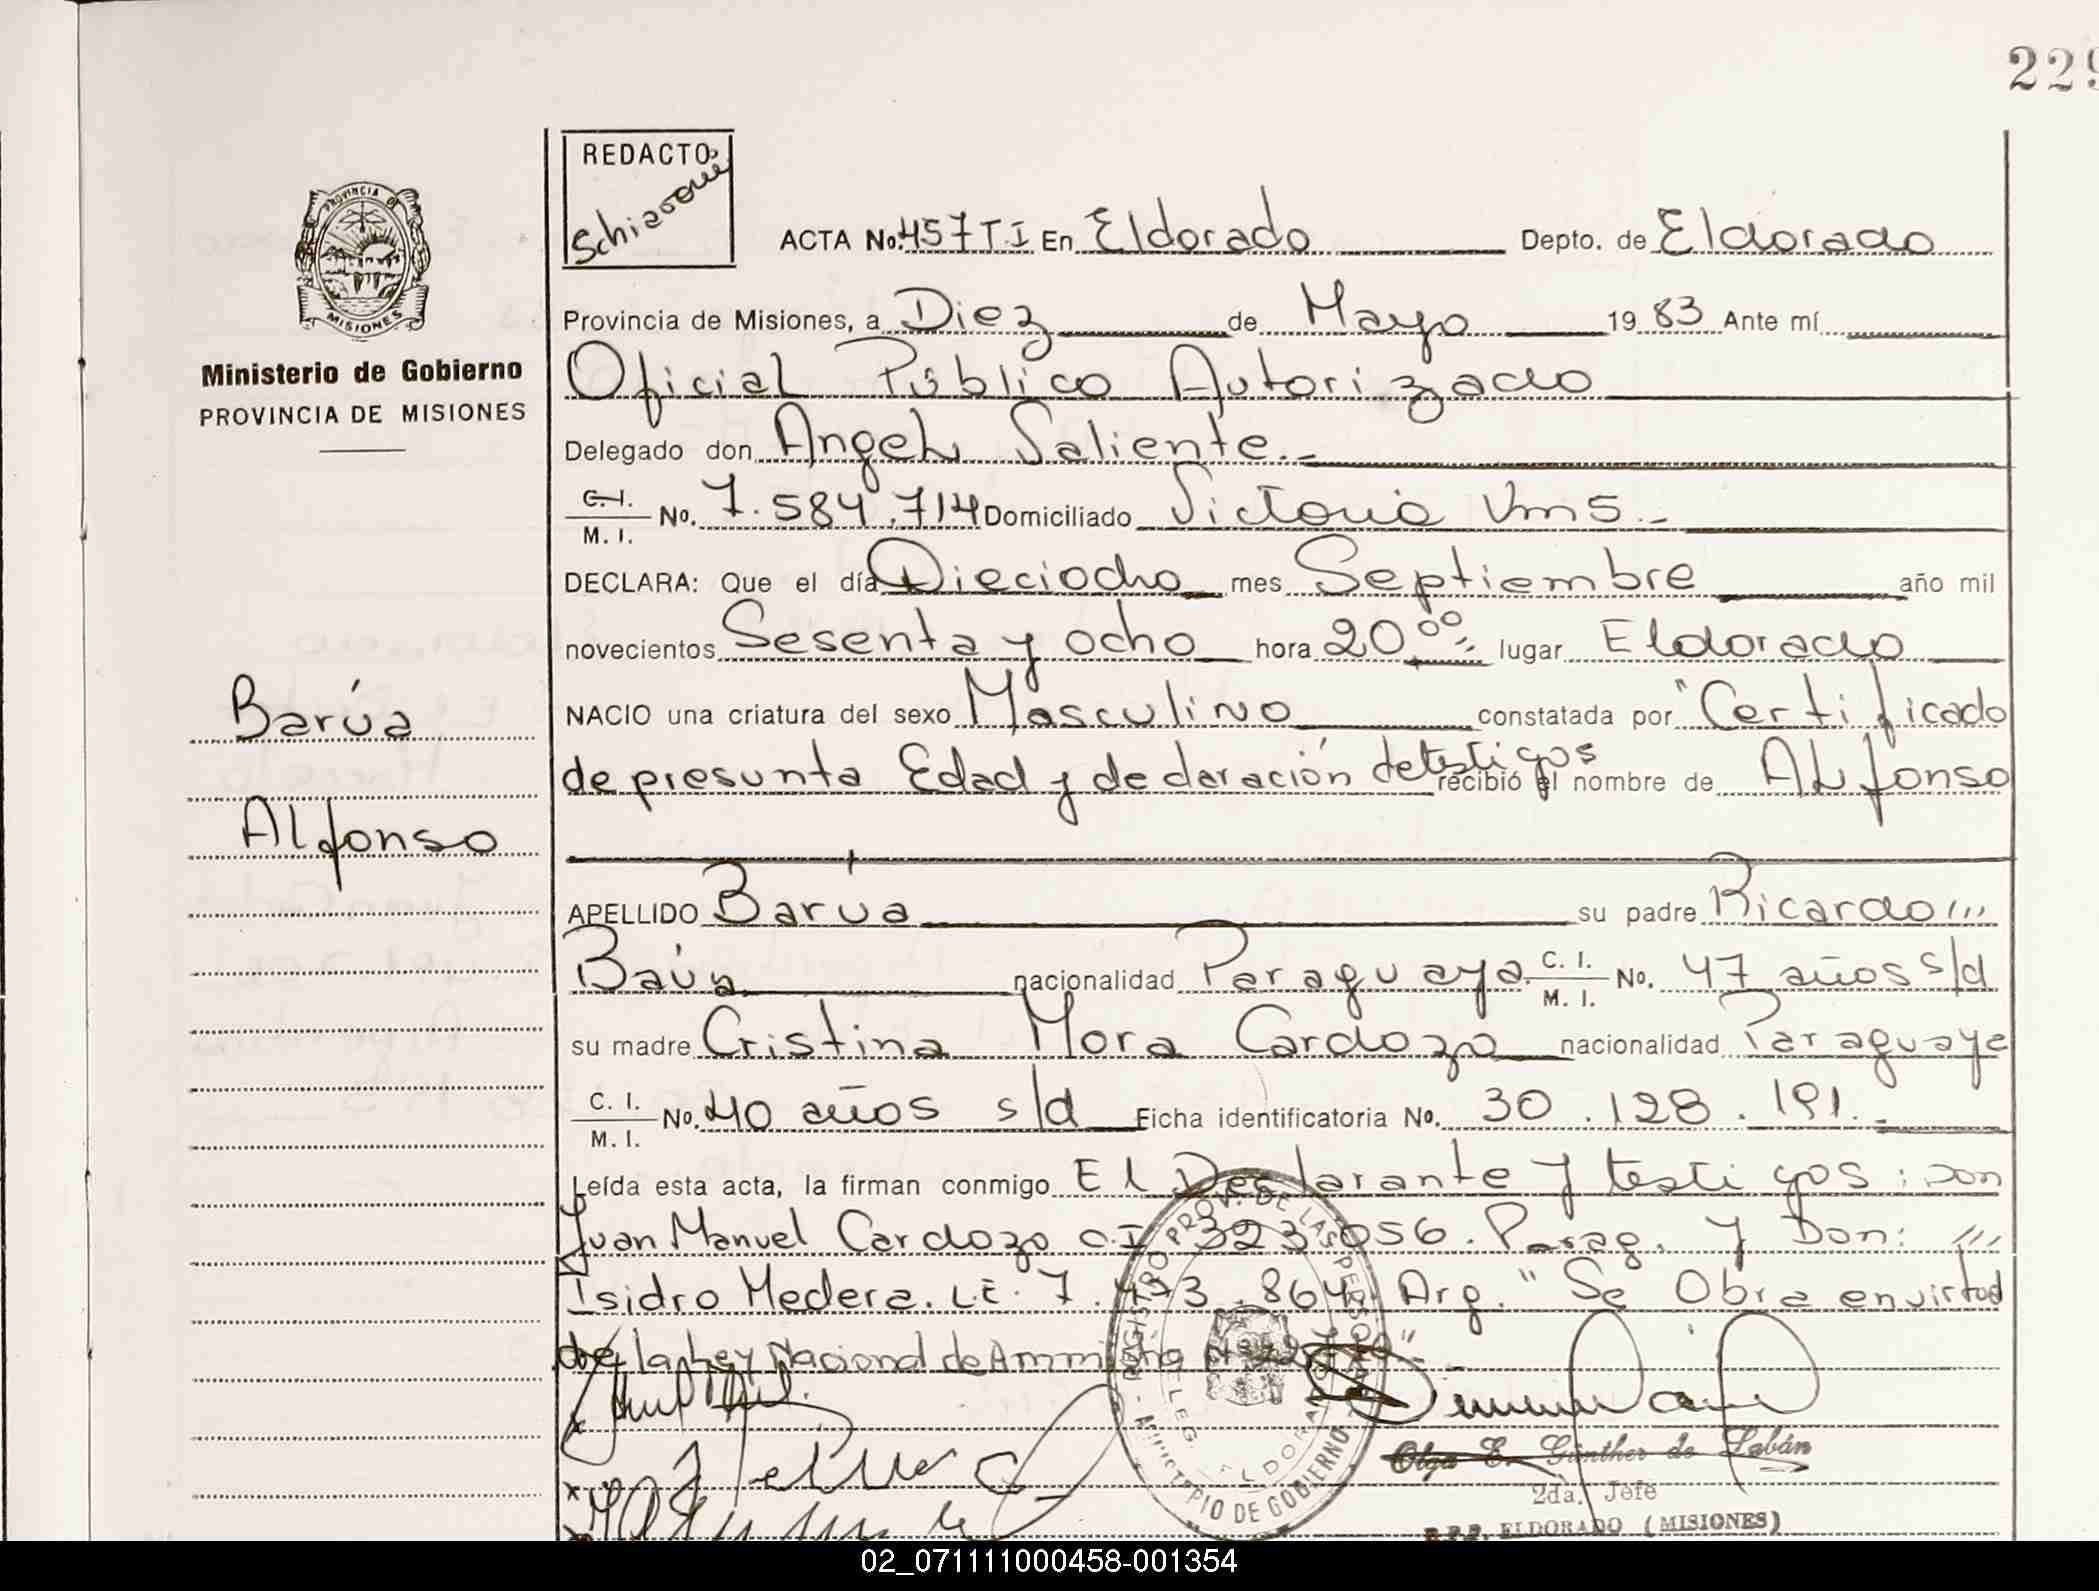 229
REDACTO
PROVINCIA DE
MISIONES
Ministerio de Gobierno
PROVINCIA DE MISIONES
ACTA No. 457 T I En Eldorado Depto. de Eldorado
Provincia de Misiones, a Diez de Mayo 19 83 Ante mí
Oficial Público Autorizado
Delegado don Angel Saliente.-
C. I.
M. I. No. 7.584.714 Domiciliado Victoria Vms.-
DECLARA: Que el día Dieciocho mes Septiembre año mil
novecientos Sesenta y ocho hora 20⁰⁰ lugar Eldorado
Barúa
NACIO una criatura del sexo Masculino constatada por "Certificado
de presunta Edad y declaración de testigos recibió el nombre de Alfonso
Alfonso
APELLIDO Barúa su padre Ricardo ///
Baúa nacionalidad Paraguaya C. I.
M. I. No. 47 años s/d
su madre Cristina Mora Cardozo nacionalidad Paraguaye
C. I.
M. I. No. 40 años s/d Ficha identificatoria No. 30.128.191.-
Leída esta acta, la firman conmigo El Declarante y testigos: Don
Juan Manuel Cardozo C.I 323.056. Parag. y Don: ///
Isidro Medera. L.E. 7.473.864. Arg. "Se Obra en virtud
de la Ley Nacional de
REGISTRO PROV. DE LAS PERSONAS
MINISTERIO DE GOBIERNO
DELEG. ELDORADO
Olga E. Günther de Labán
2da. Jefe
R.P.P. ELDORADO (MISIONES)
02_071111000458-001354